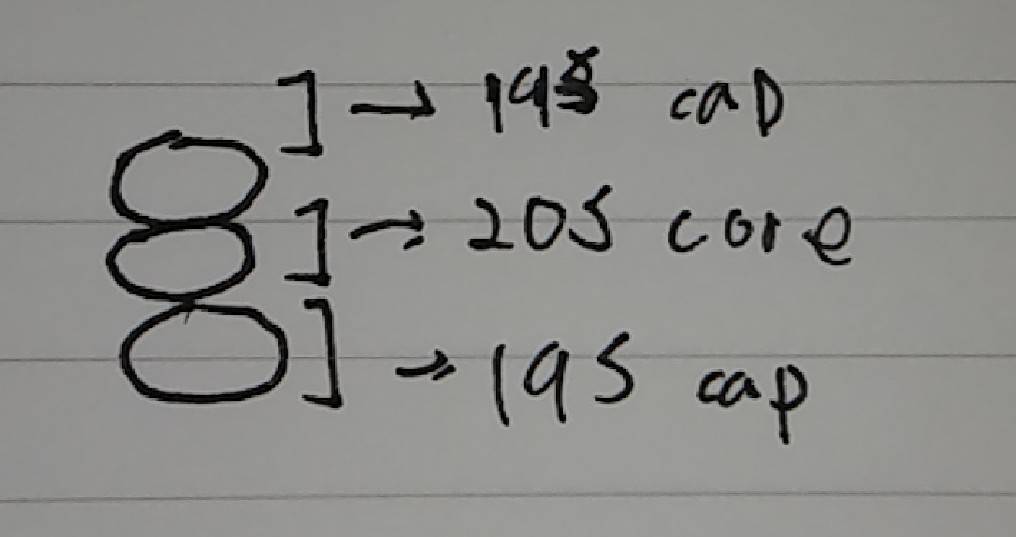 ] → 195 cap
] → 205 core
] → 195 cap